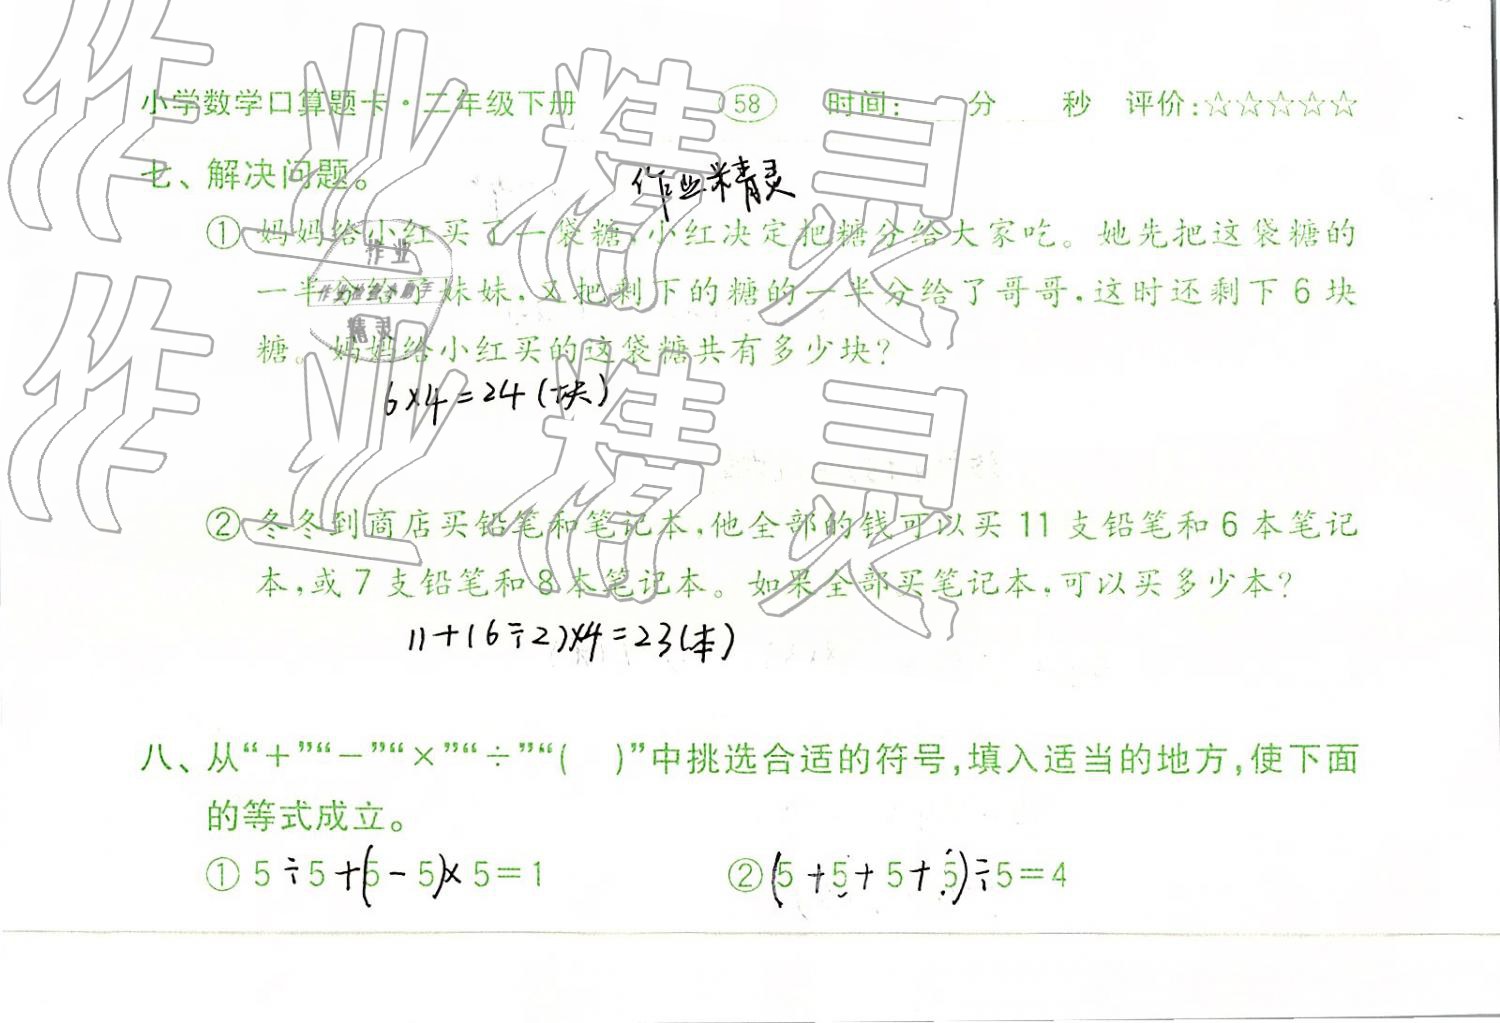 小学数学口算题卡·二年级下册 58 时间: 分 秒 评价:☆☆☆☆☆
七、解决问题。
作业精灵
① 妈妈给小红买了一袋糖,小红决定把糖分给大家吃。她先把这袋糖的
一半分给了妹妹,又把剩下的糖的一半分给了哥哥,这时还剩下6块
糖。妈妈给小红买的这袋糖共有多少块?
6×4=24(块)
② 冬冬到商店买铅笔和笔记本,他全部的钱可以买11支铅笔和6本笔记
本,或7支铅笔和8本笔记本。如果全部买笔记本,可以买多少本?
11+(6÷2)×4=23(本)
八、从“+”“-”“×”“÷”“( )”中挑选合适的符号,填入适当的地方,使下面
的等式成立。
① 5÷5+(5-5)×5=1 ② (5+5+5+5)÷5=4
作业精灵
作业精灵
作业
作业检查小助手
精灵